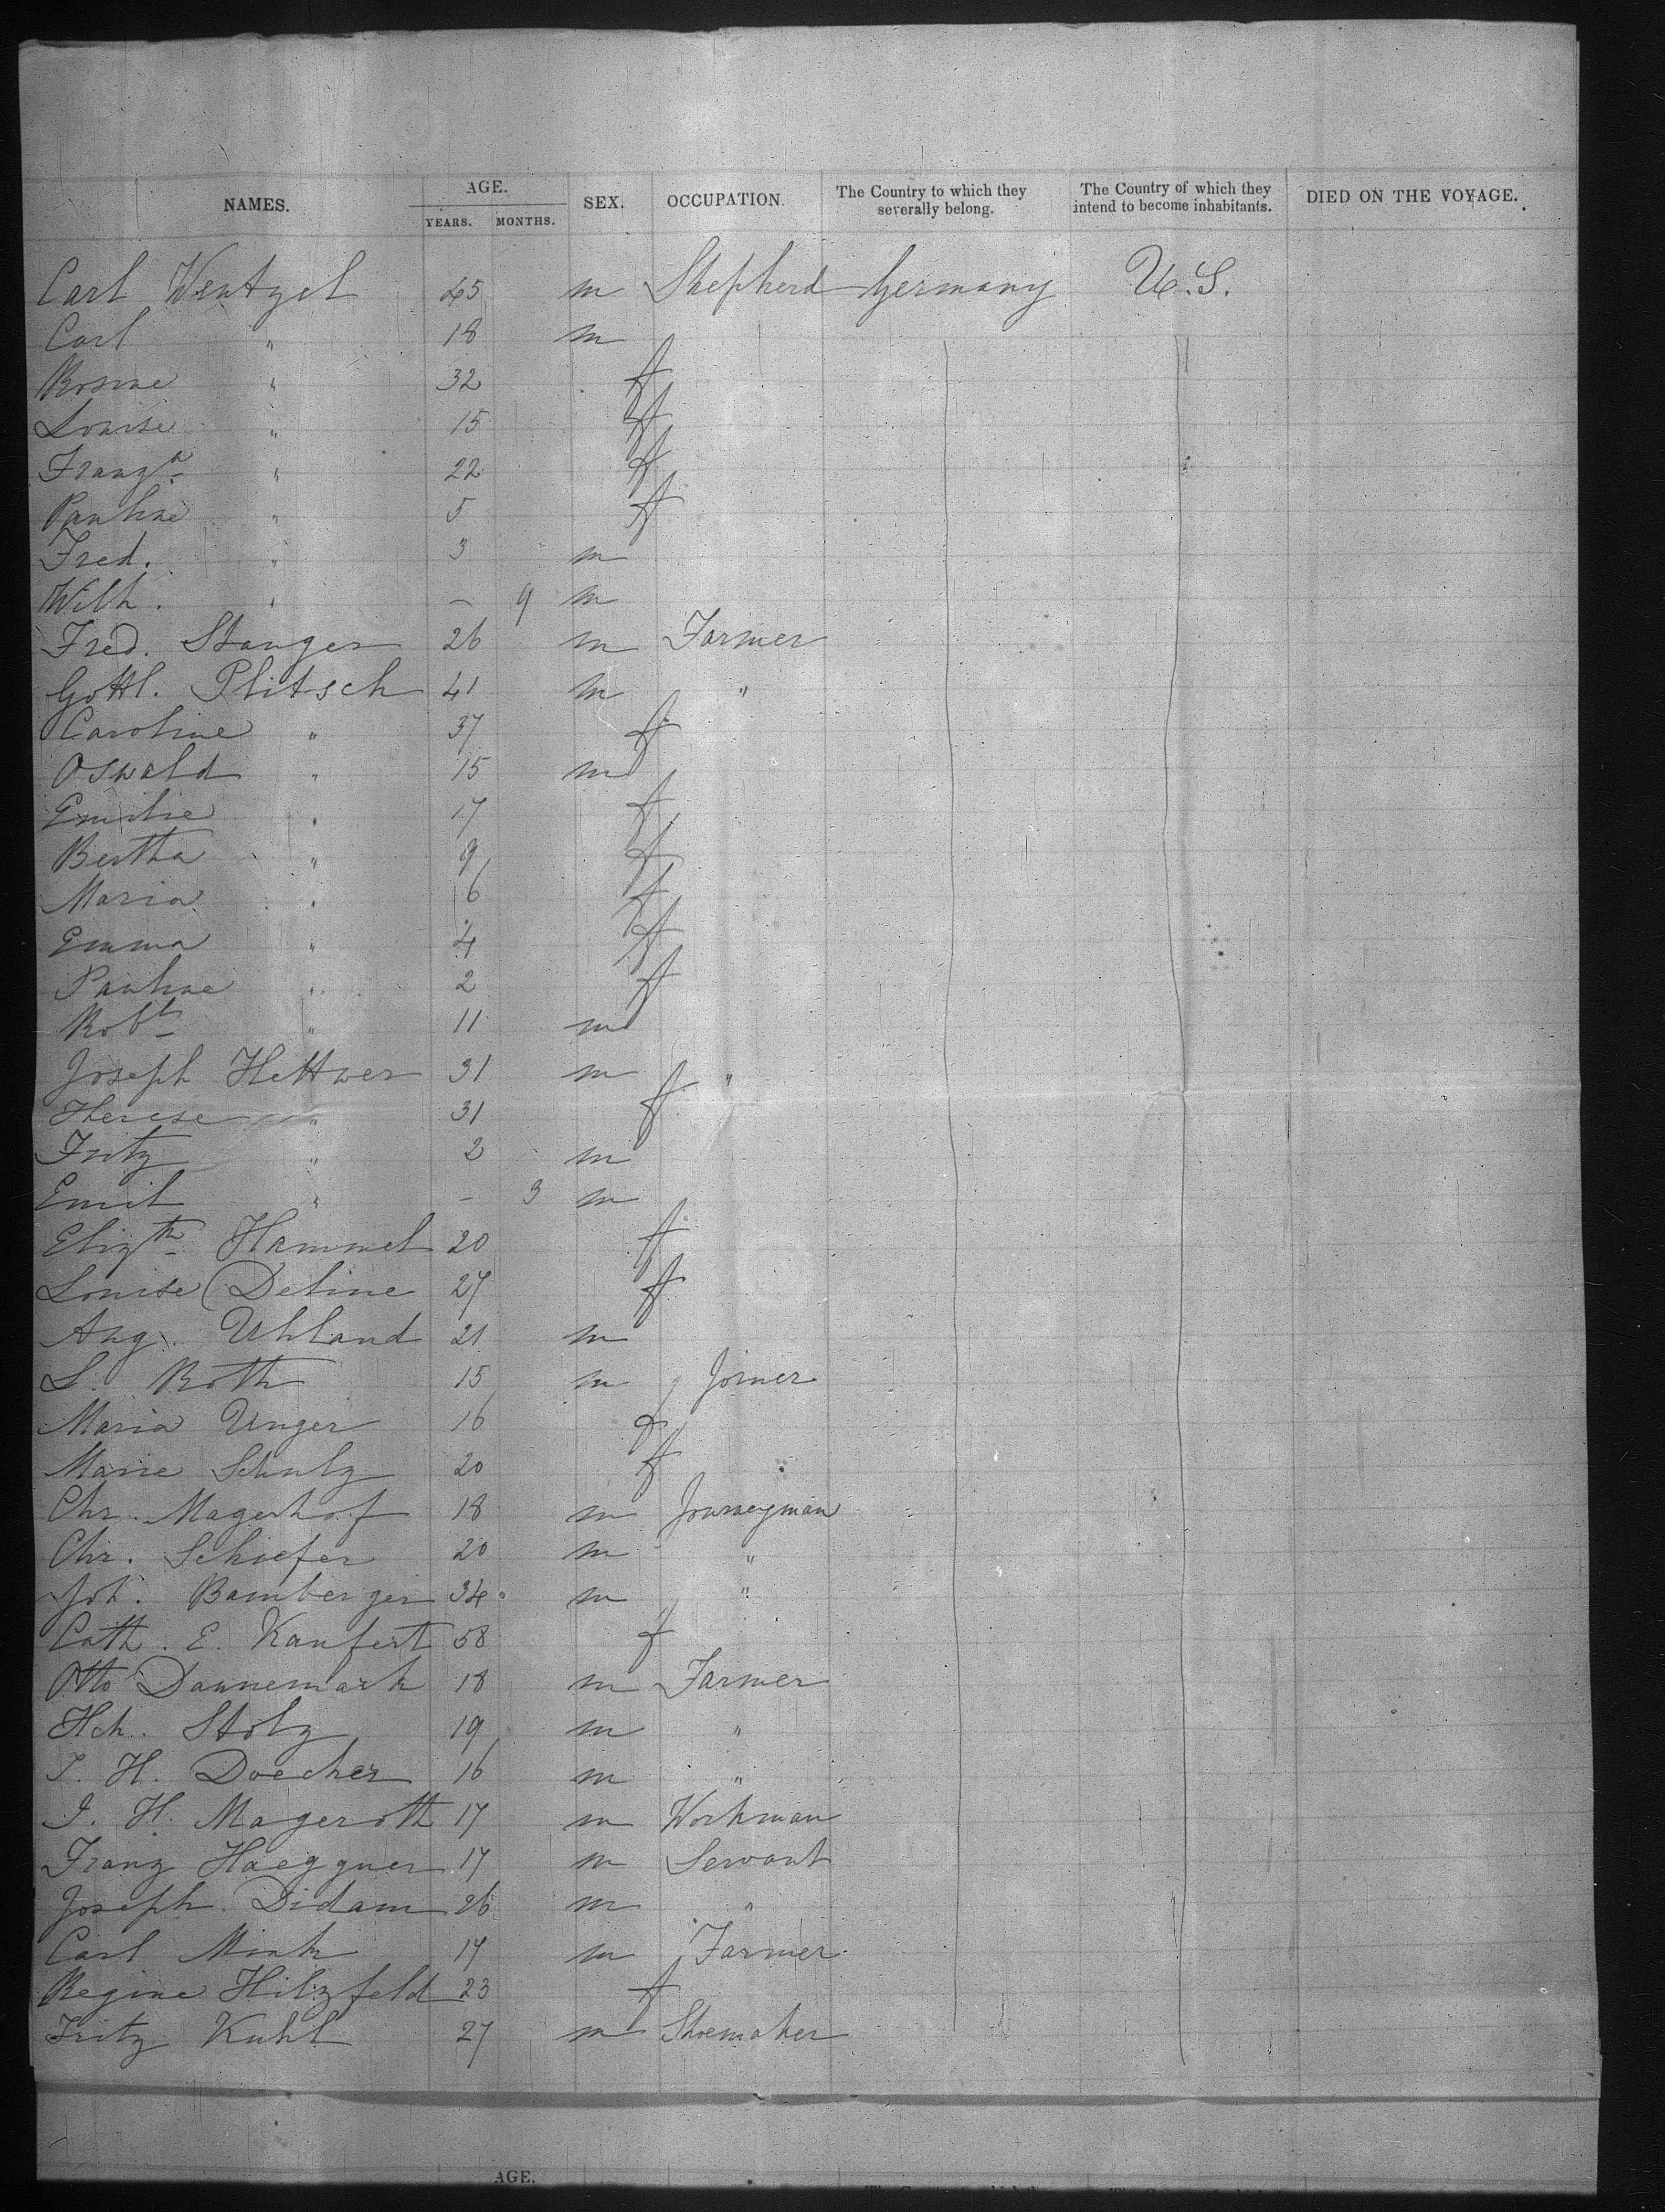 NAMES. AGE. YEARS. MONTHS. SEX. OCCUPATION. The Country to which they severally belong. The Country of which they intend to become inhabitants. DIED ON THE VOYAGE.
Carl Wentzel 45 m Shepherd Germany U.S.
Carl " 18 m
Rosine " 32 f
Louise " 15 f
Franz " 22 f
Pauline " 5 f
Fred. " 3 m
Wilh. " - 9 m
Fred. Stanger 26 m Farmer
Gottl. Plitsch 41 m "
Caroline " 37 f
Oswald " 15 m
Emilie " 17 f
Bertha " 9 f
Maria " 6 f
Emma " 4 f
Pauline " 2 f
Robt " 11 m
Joseph Hettwer 31 m "
Therese " 31 f
Fritz " 2 m
Emil " - 3 m
Elizth Hammel 20 f
Louise Deline 27 f
Aug. Uhland 21 m
L. Roth 15 m Joiner
Maria Unger 16 f
Marie Schulz 20 f
Chr. Magerhof 18 m Journeyman
Chr. Schiefer 20 m "
Joh. Bamberger 34 m "
Cath. E. Kaufert 58 f
Otto Dannemark 18 m Farmer
Hch. Stolz 19 m "
J. H. Doecher 16 m "
J. H. Mageroth 17 m Workman
Franz Haeggner 17 m Servant
Joseph Didam 26 m "
Carl Mink 17 m Farmer
Regine Hilzfeld 23 f
Fritz Kuhl 27 m Shoemaker
AGE.